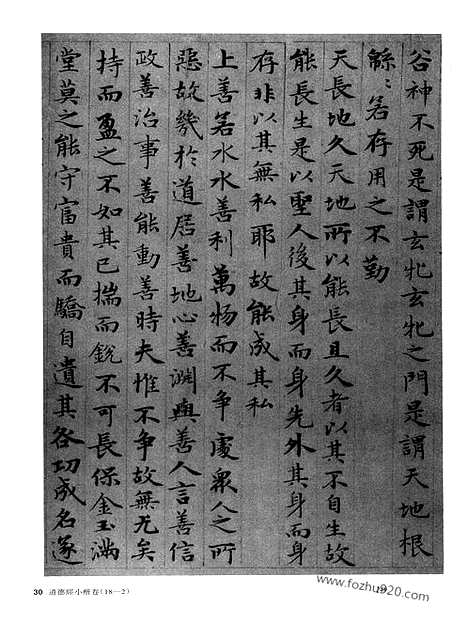 谷神不死是謂玄牝玄牝之門是謂天地根
緜〻若存用之不勤
天長地久天地所以能長且久者以其不自生故
能長生是以聖人後其身而身先外其身而身
存非以其無私耶故能成其私
上善若水水善利萬物而不争處衆人之所
惡故幾於道居善地心善淵與善人言善信
政善治事善能動善時夫惟不争故無尤矣
持而盈之不如其已揣而銳不可長保金玉滿
堂莫之能守富貴而驕自遺其咎功成名遂
30 道德經小楷卷(18—2)
www.fozhu920.com